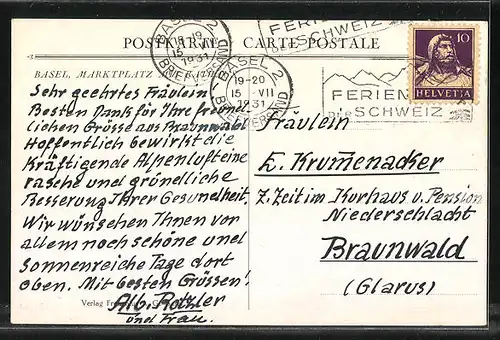 POSTKARTE CARTE POSTALE
BASEL, MARKTPLATZ
Sehr geehrtes Fräulein
Besten Dank für Ihre freund-
lichen Grösse aus Braunwald
Hoffentlich bewirkt die
Kräftigende Alpenluft eine
rasche und gründliche
Besserung Ihrer Gesundheit.
Wir wünschen Ihnen vor
allem noch schöne und
sonnenreiche Tage dort
oben. Mit besten Grössen!
Alb. Rotzler
und Frau.
Verlag
BASEL 2
18-19
1931
BRIEFVERSAND
BASEL 2
19-20
15-VII
1931
BRIEFVERSAND
FERIEN
SCHWEIZ
FERIEN
DIE SCHWEIZ
10
HELVETIA
Fräulein
E. Krumenacker
z. Zeit im Kurhaus u. Pension
Niederschlacht
Braunwald
(Glarus)